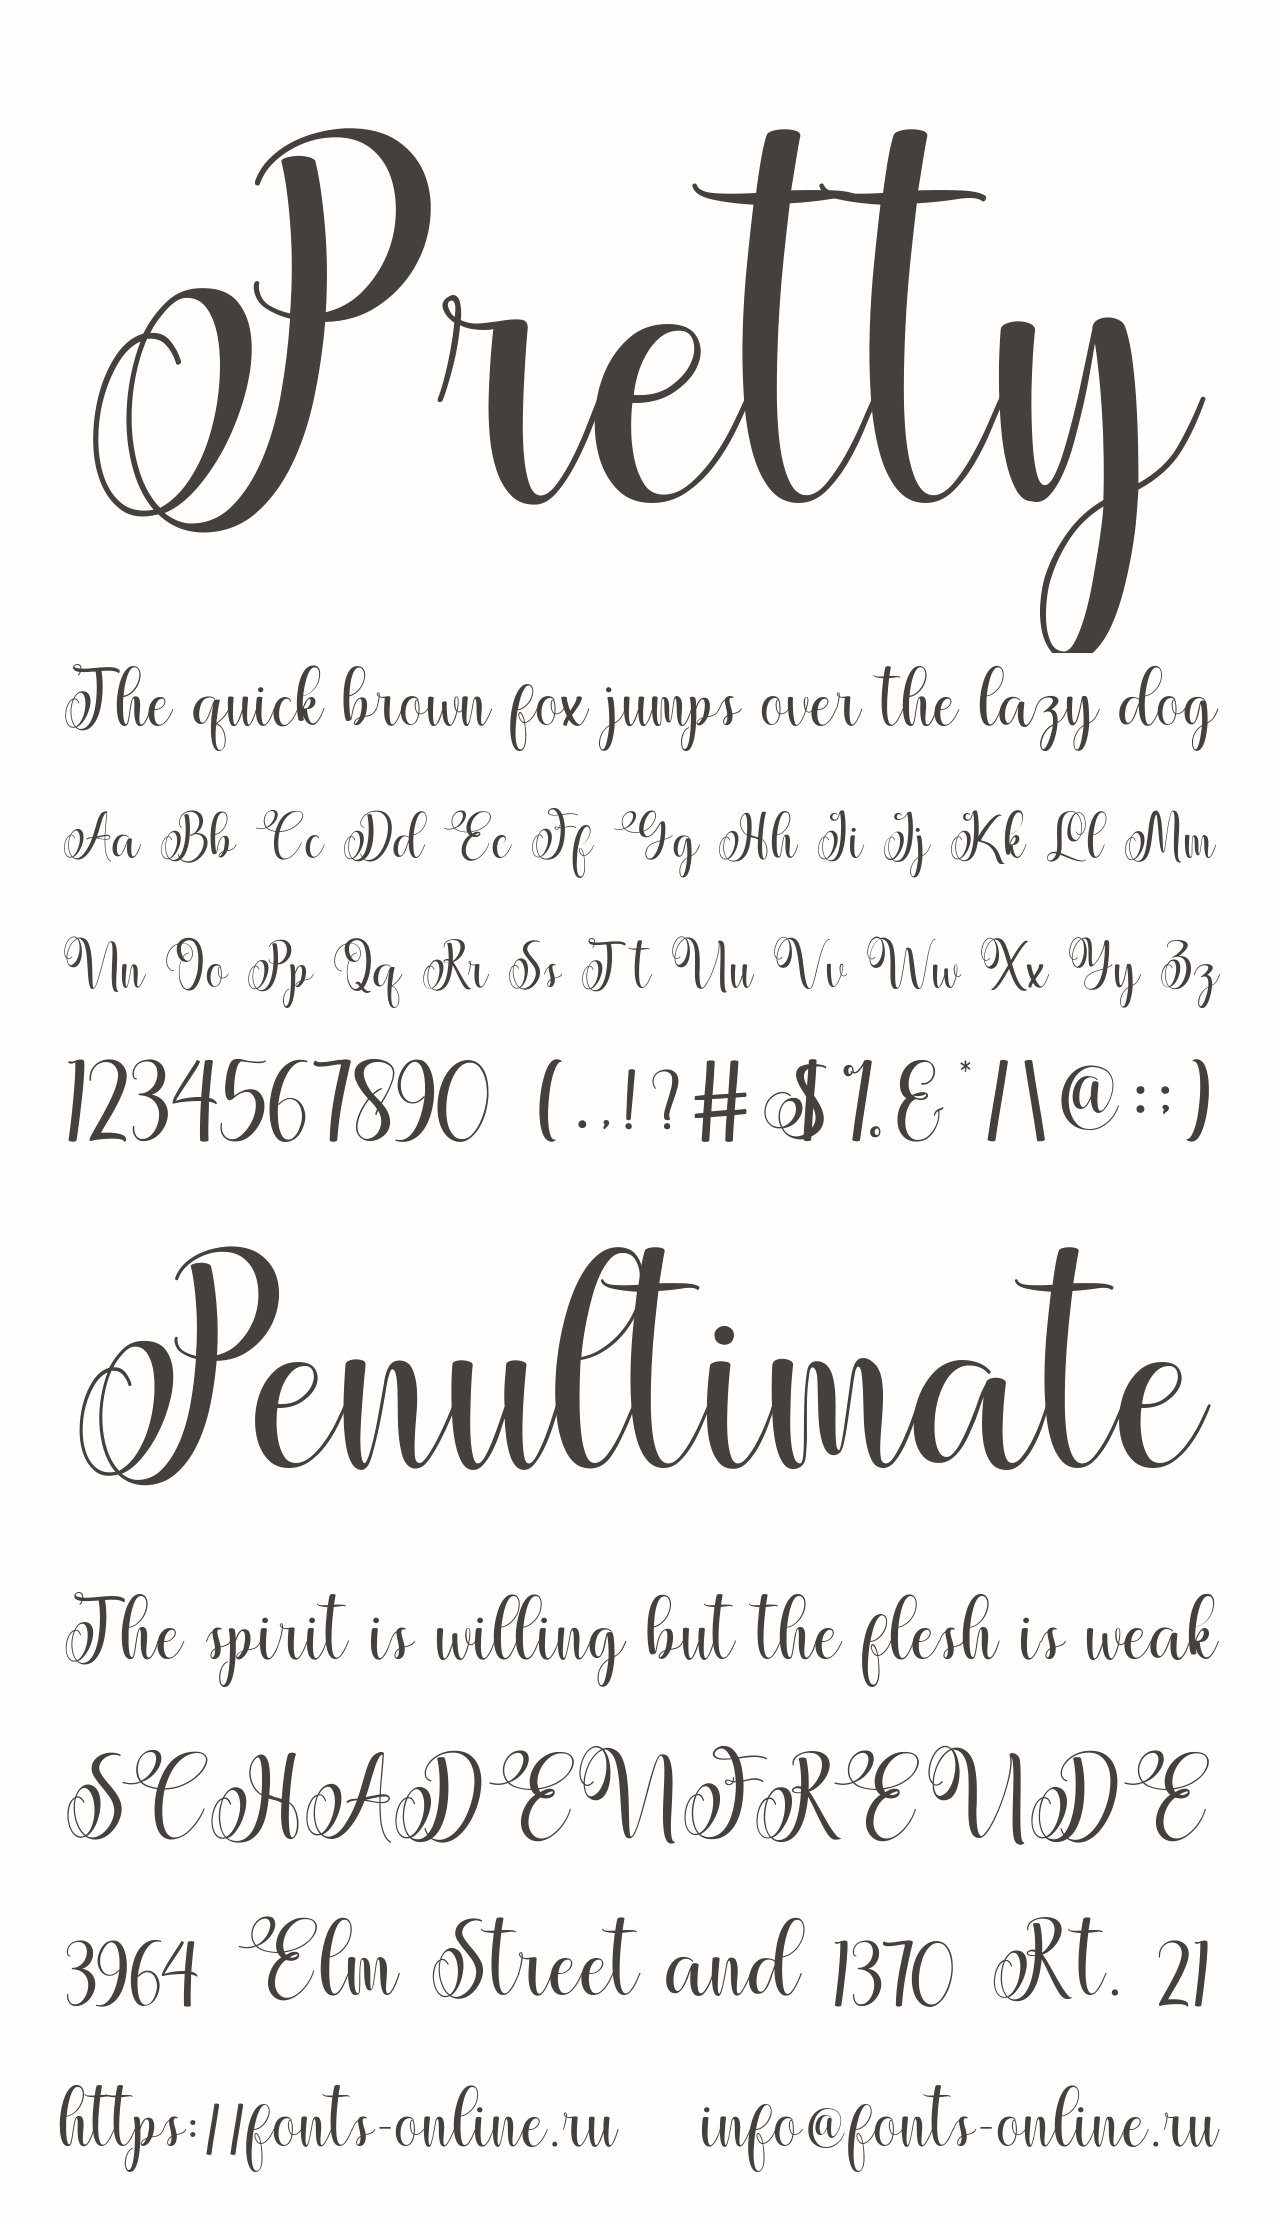 Pretty
The quick brown fox jumps over the lazy dog
Aa Bb Cc Dd Ee Ff Gg Hh Ii Jj Kk Ll Mm
Nn Oo Pp Qq Rr Ss Tt Uu Vv Ww Xx Yy Zz
1234567890 (.,!?#$%&*/\@:;)
Penultimate
The spirit is willing but the flesh is weak
SCHADENFREUDE
3964 Elm Street and 1370 Rt. 21
https://fonts-online.ru info@fonts-online.ru